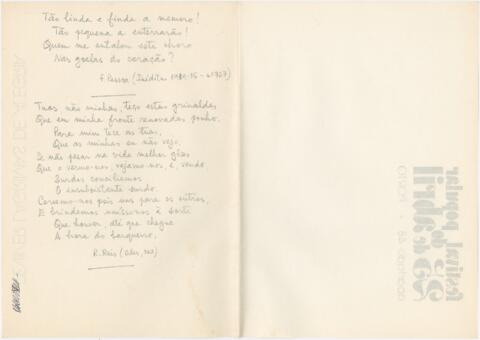 Tão linda e finda a memoro!
Tão pequena a enterrarão!
Quem me entalou este choro
Nas goelas do coração?
F. Pessoa (Inéditas
Tuas não minhas, teço estas grinaldas
Que em minha fronte renovadas ponho.
Para mim tece as tuas,
Que as minhas eu não vejo.
Se não pesar na vida melhor gozo
Que o vermo-nos, vejamo-nos, e, vendo
Surdos conciliemos
O insubsistente surdo.
Coroemo-nos pois uns para os outros,
E brindemos uníssonos à sorte
Que houver, até que chegue
A hora do barqueiro.
R. Reis (Odes,
festival popular
25 de abril